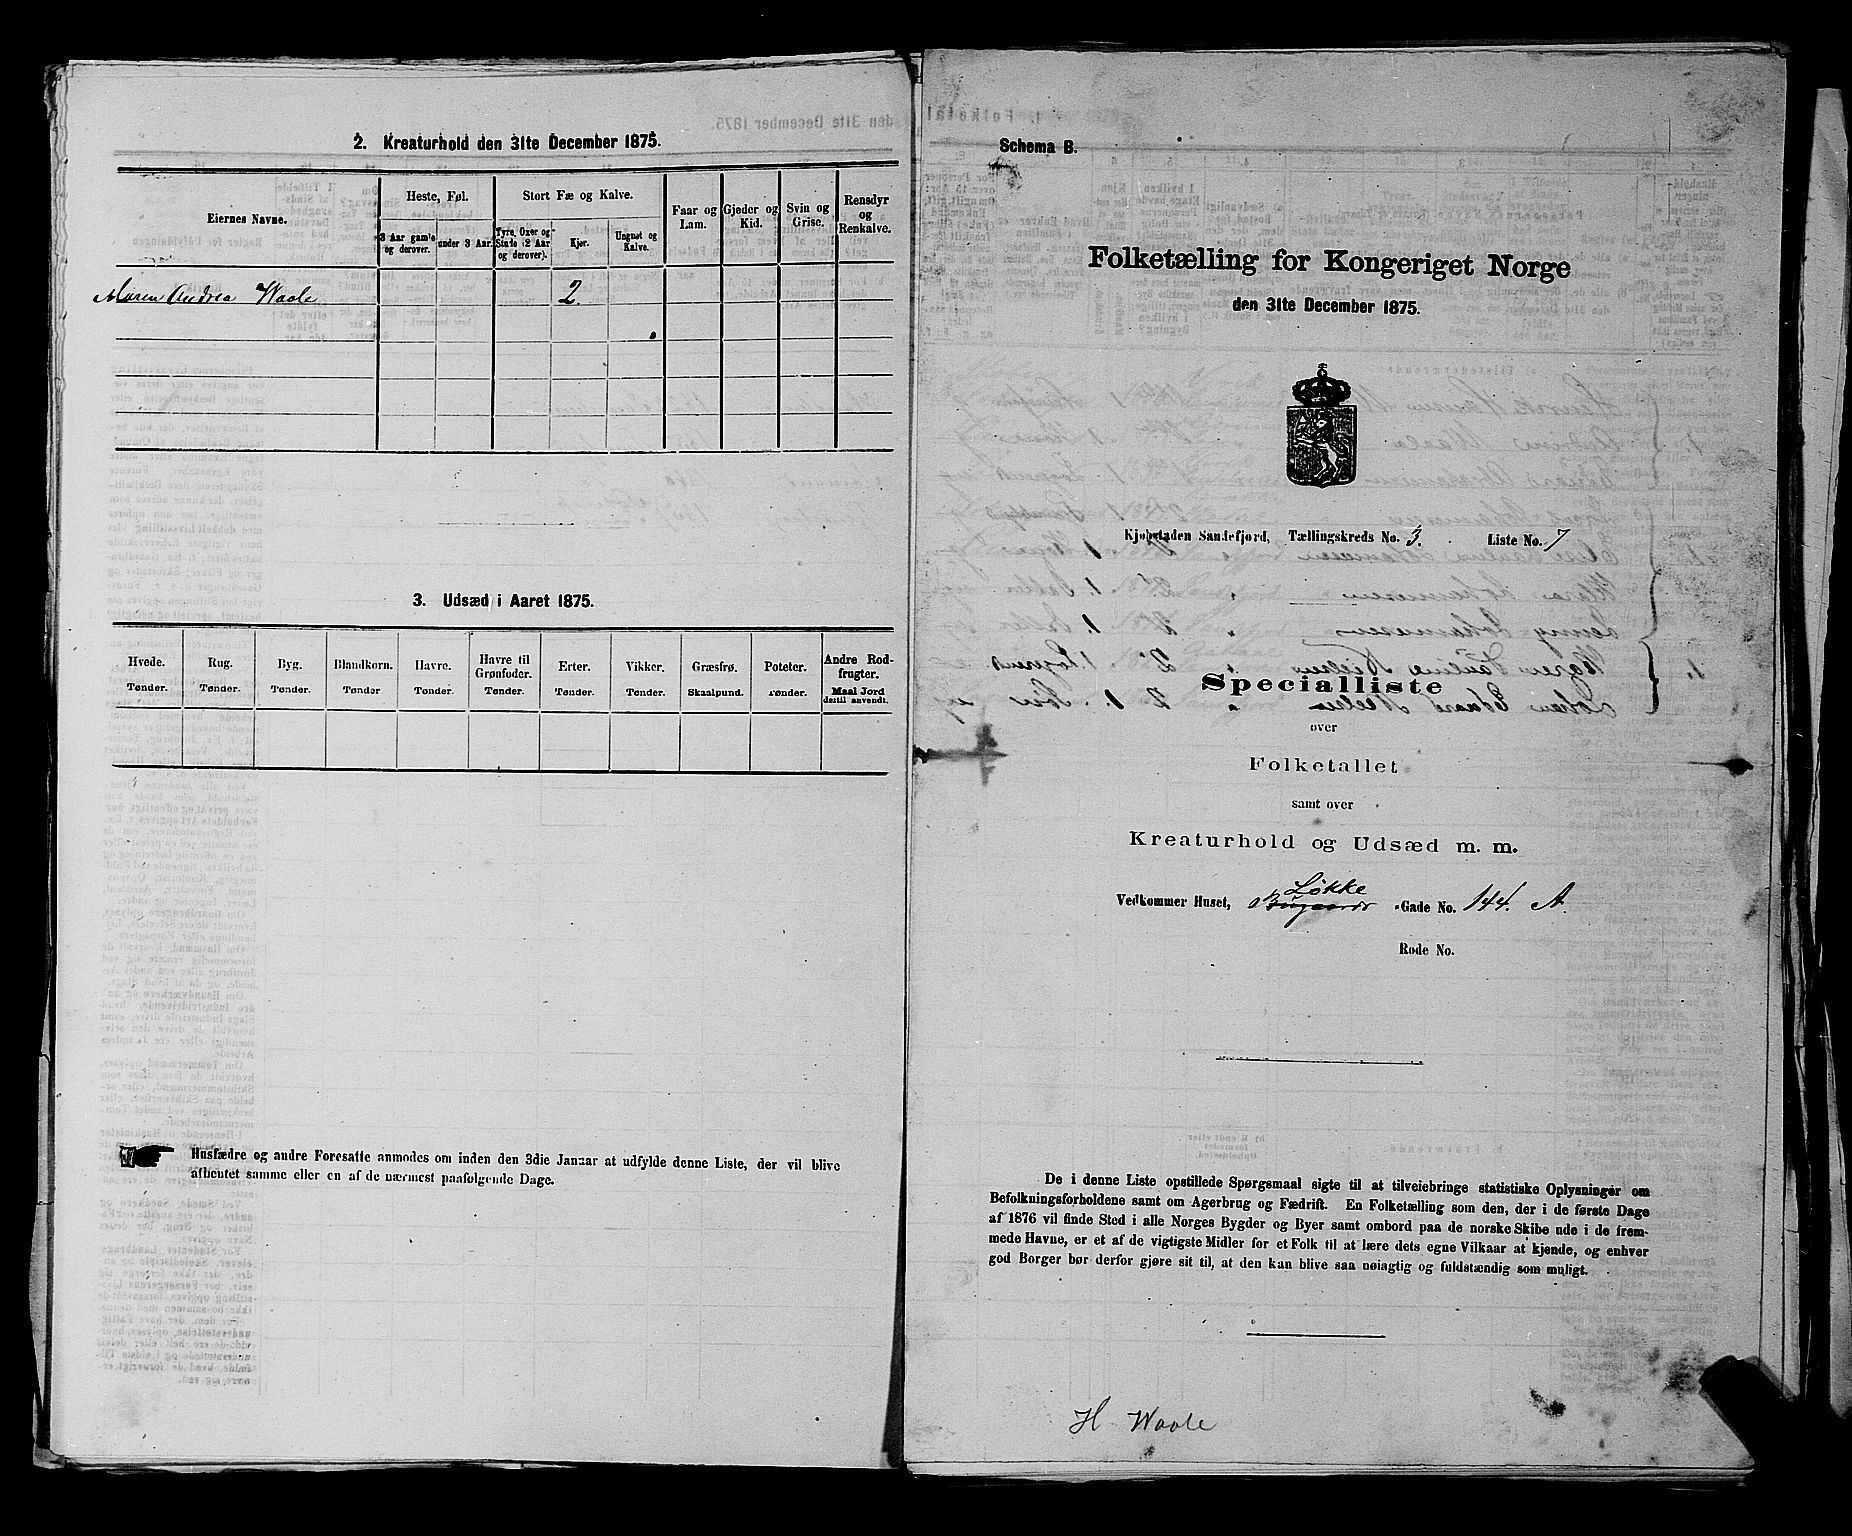 2. Kreaturhold den 31te December 1875.
Eiernes Navne.
Heste, Føl.
Stort Fæ og Kalve.
Faar og Lam.
Gjeder og Kid.
Svin og Grise.
Rensdyr og Renkalve.
3 Aar gamle og derover.
under 3 Aar.
Tyre, Oxer og Stude (2 Aar og derover).
Kjør.
Ungnøt og Kalve.
Maren Andrea Waale 2.
3. Udsæd i Aaret 1875.
Hvede. Rug. Byg. Blandkorn. Havre. Havre til Grønfoder. Erter. Vikker. Græsfrø. Poteter. Andre Rodfrugter.
Tønder. Tønder. Tønder. Tønder Tønder. Tønder. Tønder. Tønder. Skaalpund. Tønder. Maal Jord dertil anvendt.
Husfædre og andre Foresatte anmodes om inden den 3die Januar at udfylde denne Liste, der vil blive
afhentet samme eller en af de nærmest paafølgende Dage.
Schema B.
Folketælling for Kongeriget Norge
den 31te December 1875.
Kjøbstaden Sandefjord, Tællingskreds No. 3. Liste No. 7
Specialliste
over
Folketallet
samt over
Kreaturhold og Udsæd m. m.
Løkke
Vedkommer Huset, Bugaards -Gade No. 144. A.
Rode No.
De i denne Liste opstillede Spørgsmaal sigte til at tilveiebringe statistiske Oplysninger om
Befolkningsforholdene samt om Agerbrug og Fædrift. En Folketælling som den, der i de første Dage
af 1876 vil finde Sted i alle Norges Bygder og Byer samt ombord paa de norske Skibe ude i de frem-
mede Havne, er et af de vigtigste Midler for et Folk til at lære dets egne Vilkaar at kjende, og enhver
god Borger bør derfor gjøre sit til, at den kan blive saa nøiagtig og fuldstændig som muligt.
H Waale